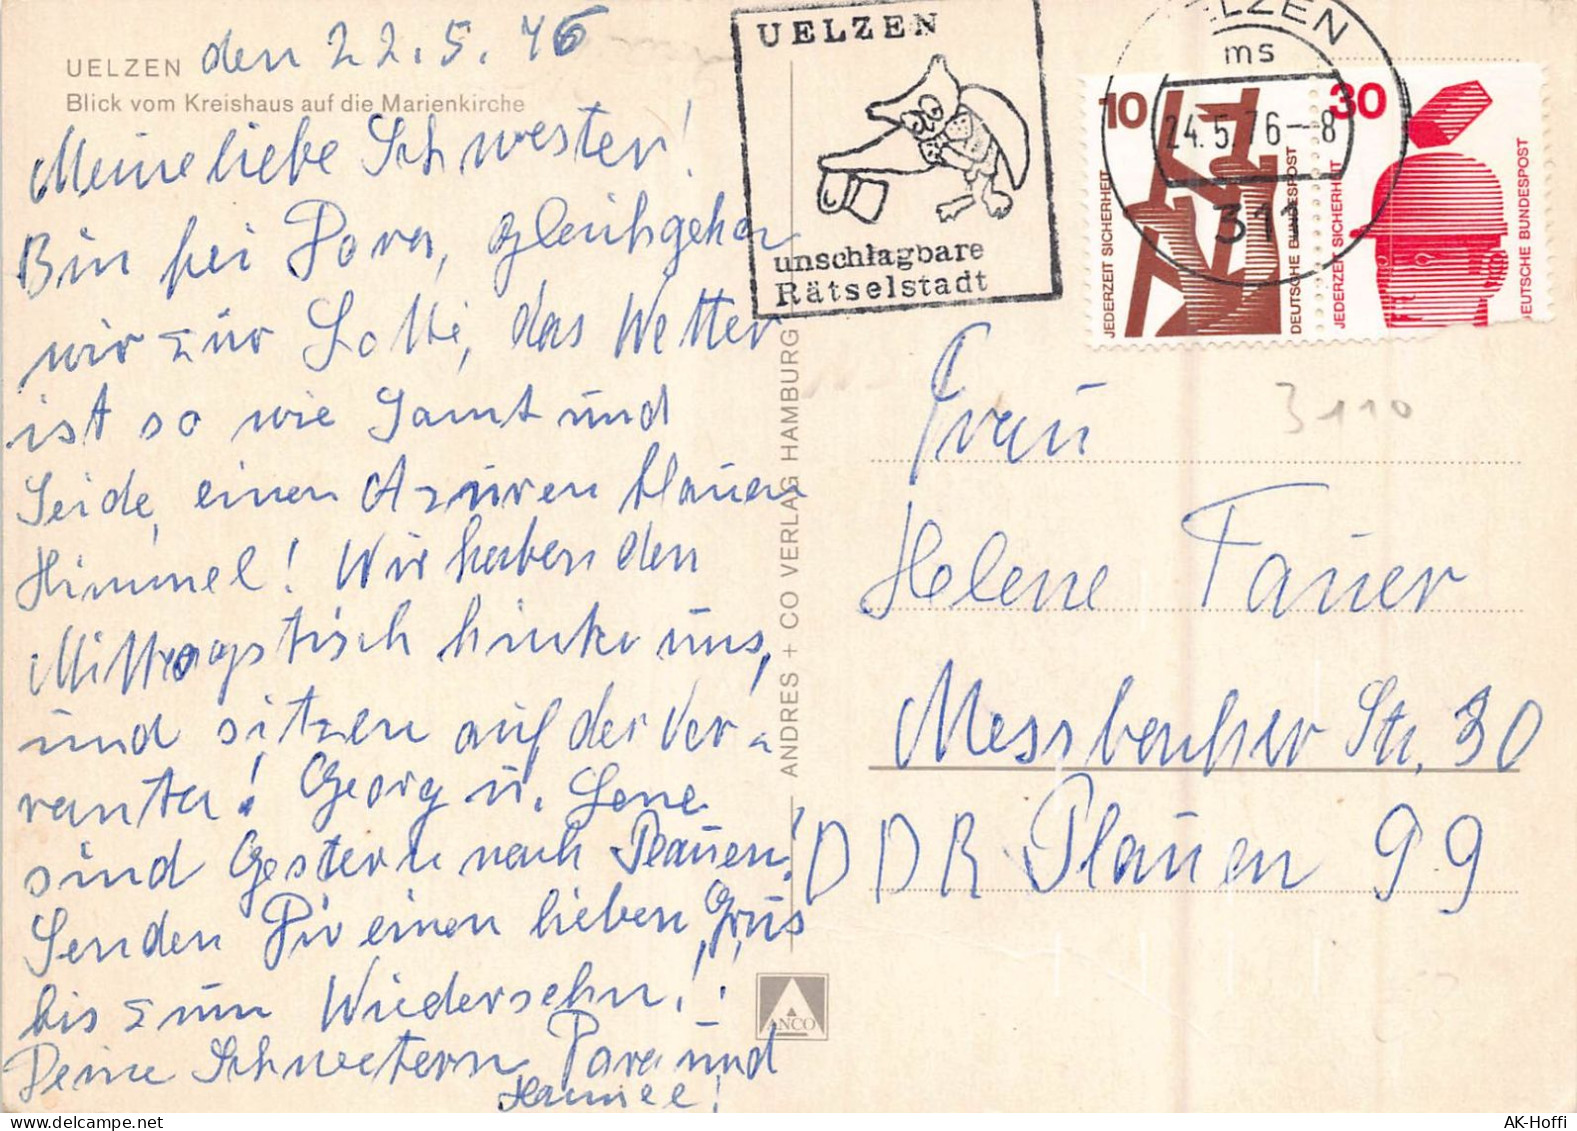 UELZEN den 22.5.76
Blick vom Kreishaus auf die Marienkirche
Meine liebe Schwester!
Bin bei Dora, gleich gehen
wir zur Lotti, das Wetter
ist so wie Samt und
Seide, einen Azuren blauen
Himmel! Wir haben den
Mittagstisch hinter uns,
und sitzen auf der Ver-
randa! Georg u. Lene
sind Gestern nach Plauen!
Senden Dir einen lieben Grus
bis zum Wiedersehn!
Deine Schwetern Dora und
UELZEN
unschlagbare
Rätselstadt
UELZEN
ms
24.5.76-8
311
10
JEDERZEIT SICHERHEIT
DEUTSCHE BUNDESPOST
30
JEDERZEIT SICHERHEIT
DEUTSCHE BUNDESPOST
3110
Frau
Helene Fauer
Messbacher Str. 30
DDR Plauen 99
ANDRES + CO VERLAG HAMBURG
ANCO
AK-Hoffi